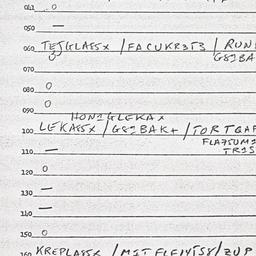 041 o
050 —
060 TEJGLASSX / FACUKR3T3 / RUN
GSIBA
070
080 o
090 o
HONIGLEKAX
100 LEKASSX / GSIBAK+ / TORTGAF
FLA7SUMI
110 — TRIS
120 o
130 —
140 —
150 o
160 KREPLASSX / MIT FLEIYTSY / ZUP